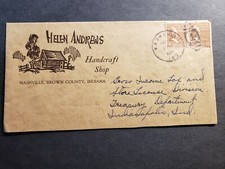 HELEN ANDREWS
Handcraft
Shop
NASHVILLE, BROWN COUNTY, INDIANA
Gross Income Tax and
Store License Division
Treasury Department
Indianapolis, Ind.